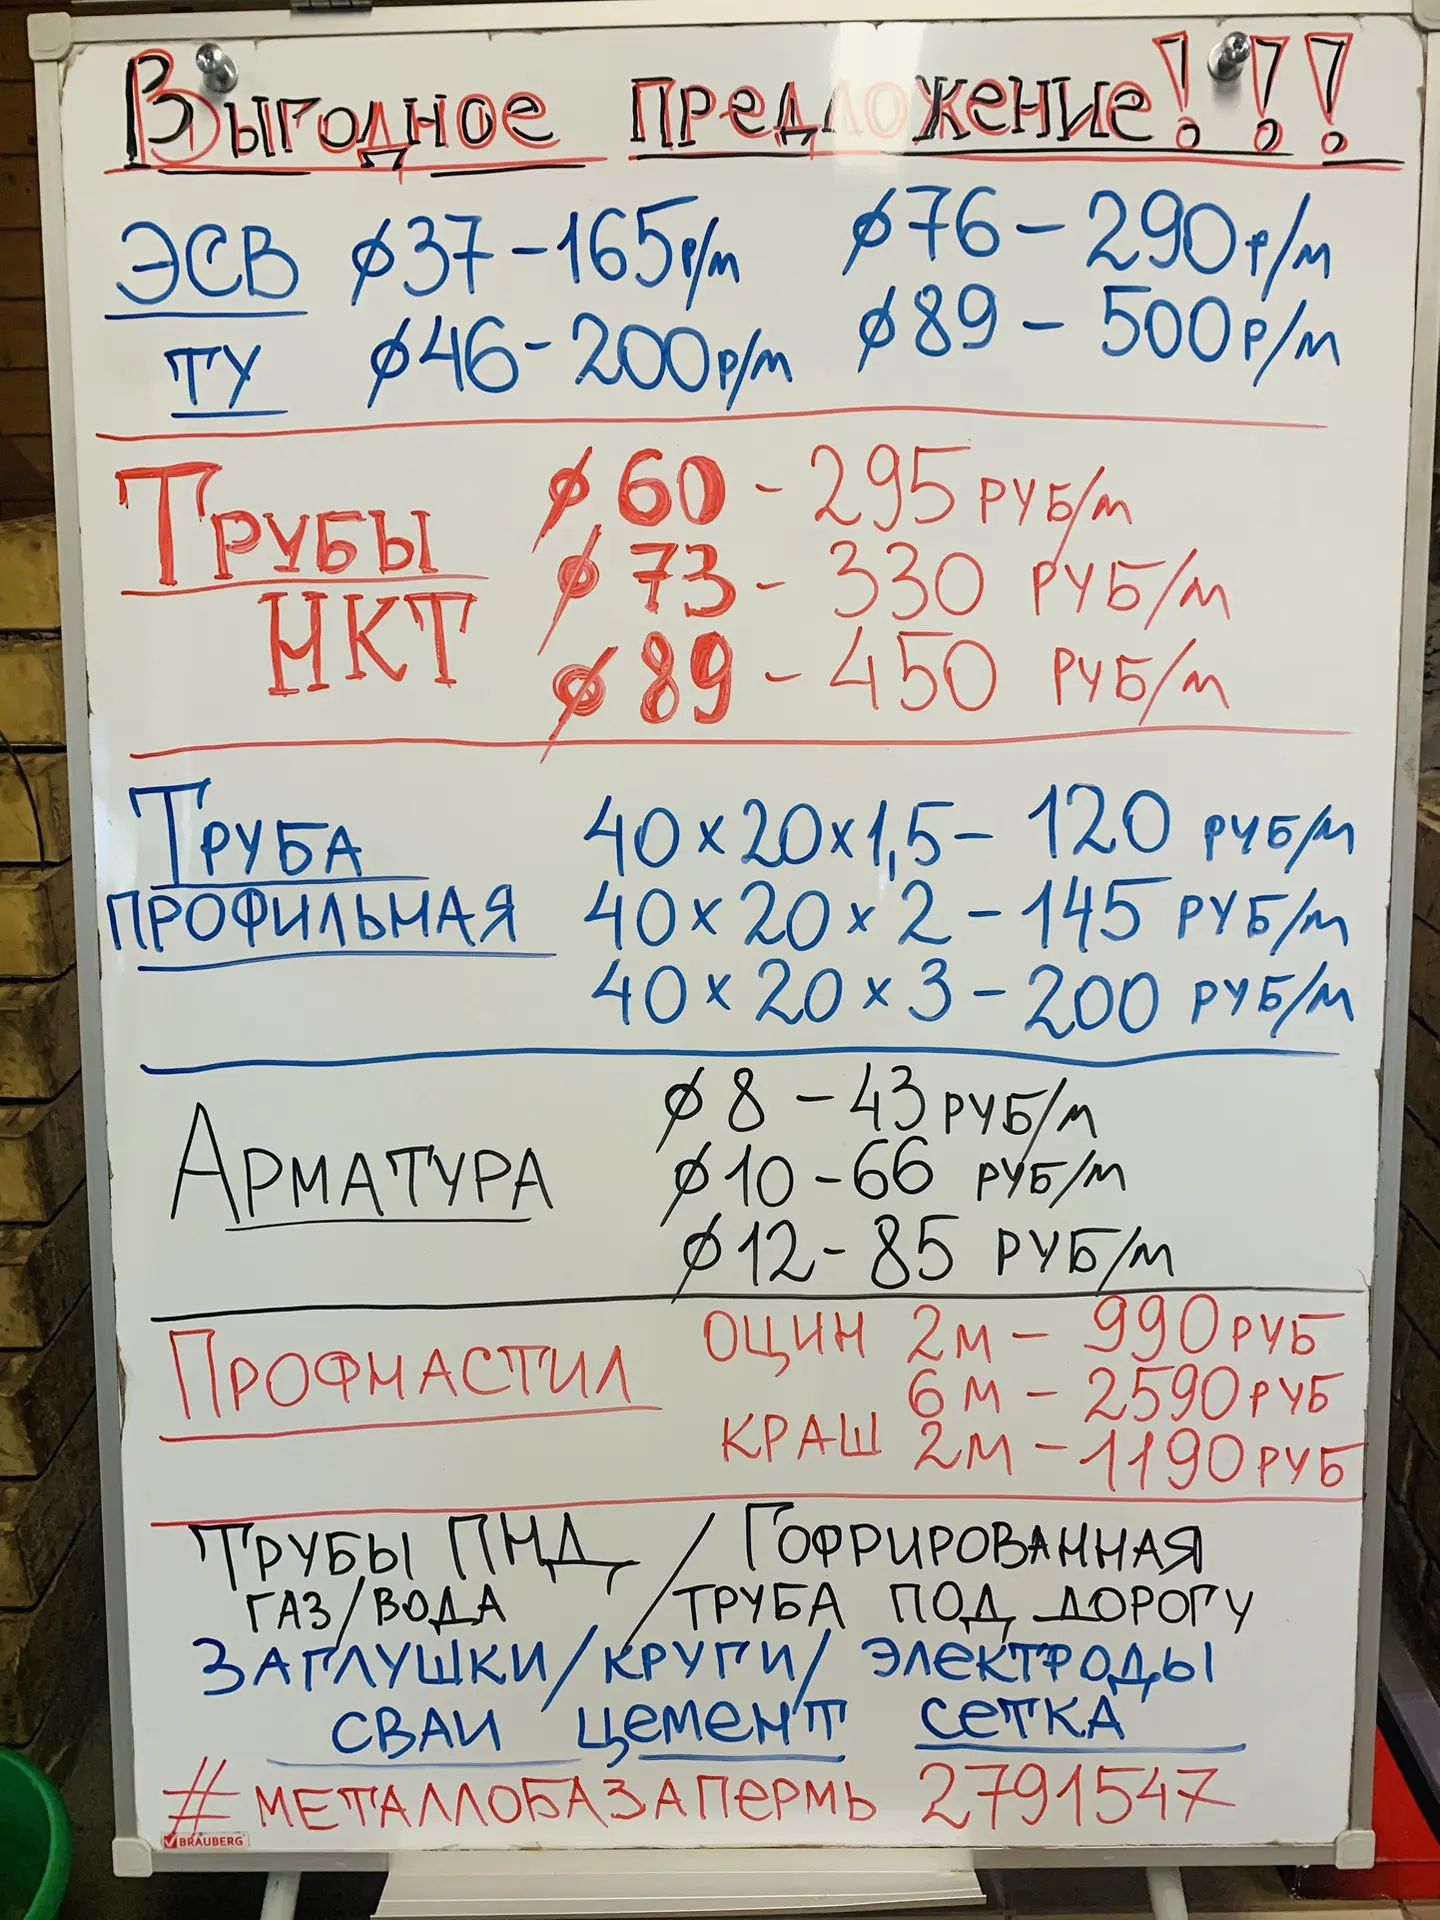 Выгодное предложение!!!
ЭСВ ⌀37-165р/м ⌀76-290р/м
ТУ ⌀46-200р/м ⌀89-500р/м
Трубы ⌀60-295 руб/м
НКТ ⌀73-330 руб/м
⌀89-450 руб/м
Труба 40х20х1,5-120 руб/м
профильная 40х20х2-145 руб/м
40х20х3-200 руб/м
⌀8-43 руб/м
Арматура ⌀10-66 руб/м
⌀12-85 руб/м
Профнастил ОЦИН 2м-990 руб
6м-2590 руб
КРАШ 2м-1190 руб
Трубы ПНД / Гофрированная
газ/вода труба под дорогу
Заглушки/круги/электроды
сваи цемент сетка
#металлобазаПермь 2791547
BRAUBERG